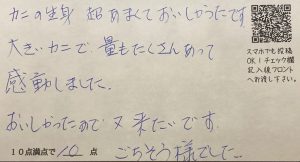 カニの生身 超あまくておいしかったです
大きいカニで、量もたくさんあって
感動しました。
おいしかったので 又来たいです。
ごちそう様でした。
スマホでも投稿
OK！チェック欄
記入後フロント
へお渡し下さい。
10点満点で10点